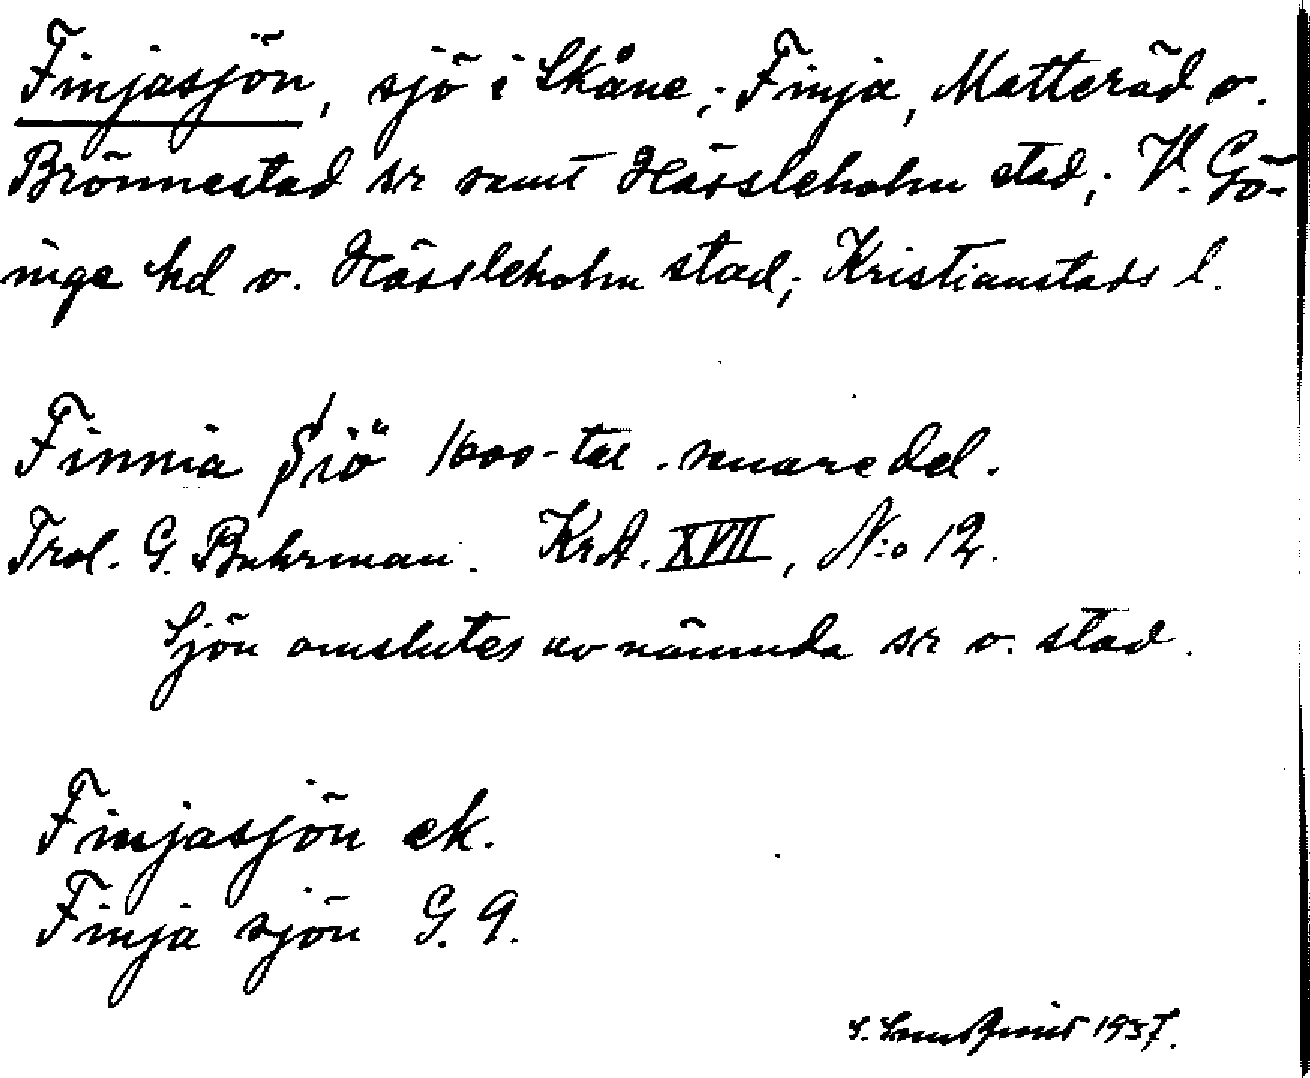 Finjasjön, sjö i Skåne; Finja, Matteröd o.
Brönnestad sr samt Hässleholm stad; V. Gö-
inge hd o. Hässleholm stad; Kristianstads l.
Finnia Siö 1600-tal. senare del.
Trol. G. Buhrman. KrA. XVII, N:o 12.
Sjön omslutes av nämnda sr o. stad.
Finjasjön ek.
Finja sjön G. 9.
S. 1937.